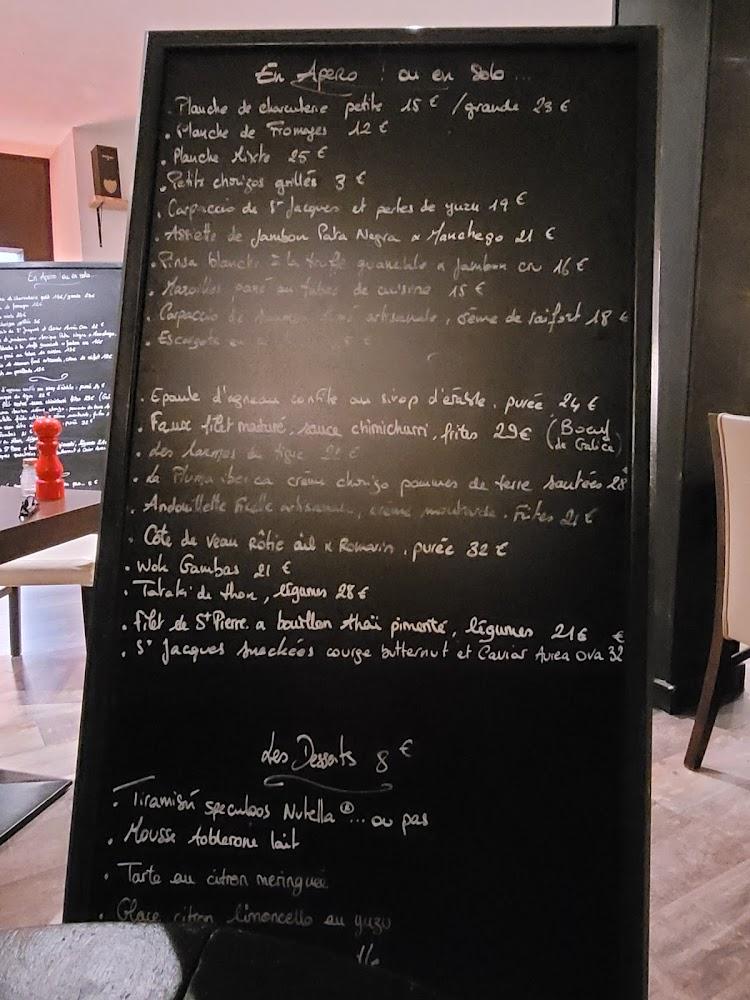 En Apero ! ou en Solo ...
. Planche de charcuterie petite 15 € / grande 23 €
. Planche de Fromages 12 €
. Planche Mixte 25 €
. Petits chorizos grillés 3 €
. Carpaccio de St Jacques et perles de yuzu 19 €
. Assiette de Jambon Pata Negra & Manchego 21 €
. Pinsa blanche à la truffe guanciale & Jambon cru 16 €
. Maroilles pané au tuiles de cuisine 15 €
. Carpaccio de artisanale, crème de raifort 18 €
. Escargots
. Epaule d'agneau confite au sirop d'érable, purée 24 €
. Faux filet maturé, sauce chimichurri, frites 29€ (Boeuf de Galice)
. Les larmes du tigre 21 €
. La Pluma iberica crème chorizo pommes de terre sautées 28 €
. Andouillette ficelle artisanale, crème moutarde. Frites 21 €
. Côte de veau Rôtie ail & Romarin, purée 32 €
. Wok Gambas 21 €
. Tataki de thon, légumes 28 €
. filet de St Pierre a bouillon thaï pimenté, légumes 26 €
. St Jacques snackées courge butternut et Caviar Aurea Ova 32 €
Les Desserts 8 €
. Tiramisu speculoos Nutella ®... ou pas
. Mousse toblerone lait
. Tarte au citron meringuée
. Glace citron limoncello au yuzu